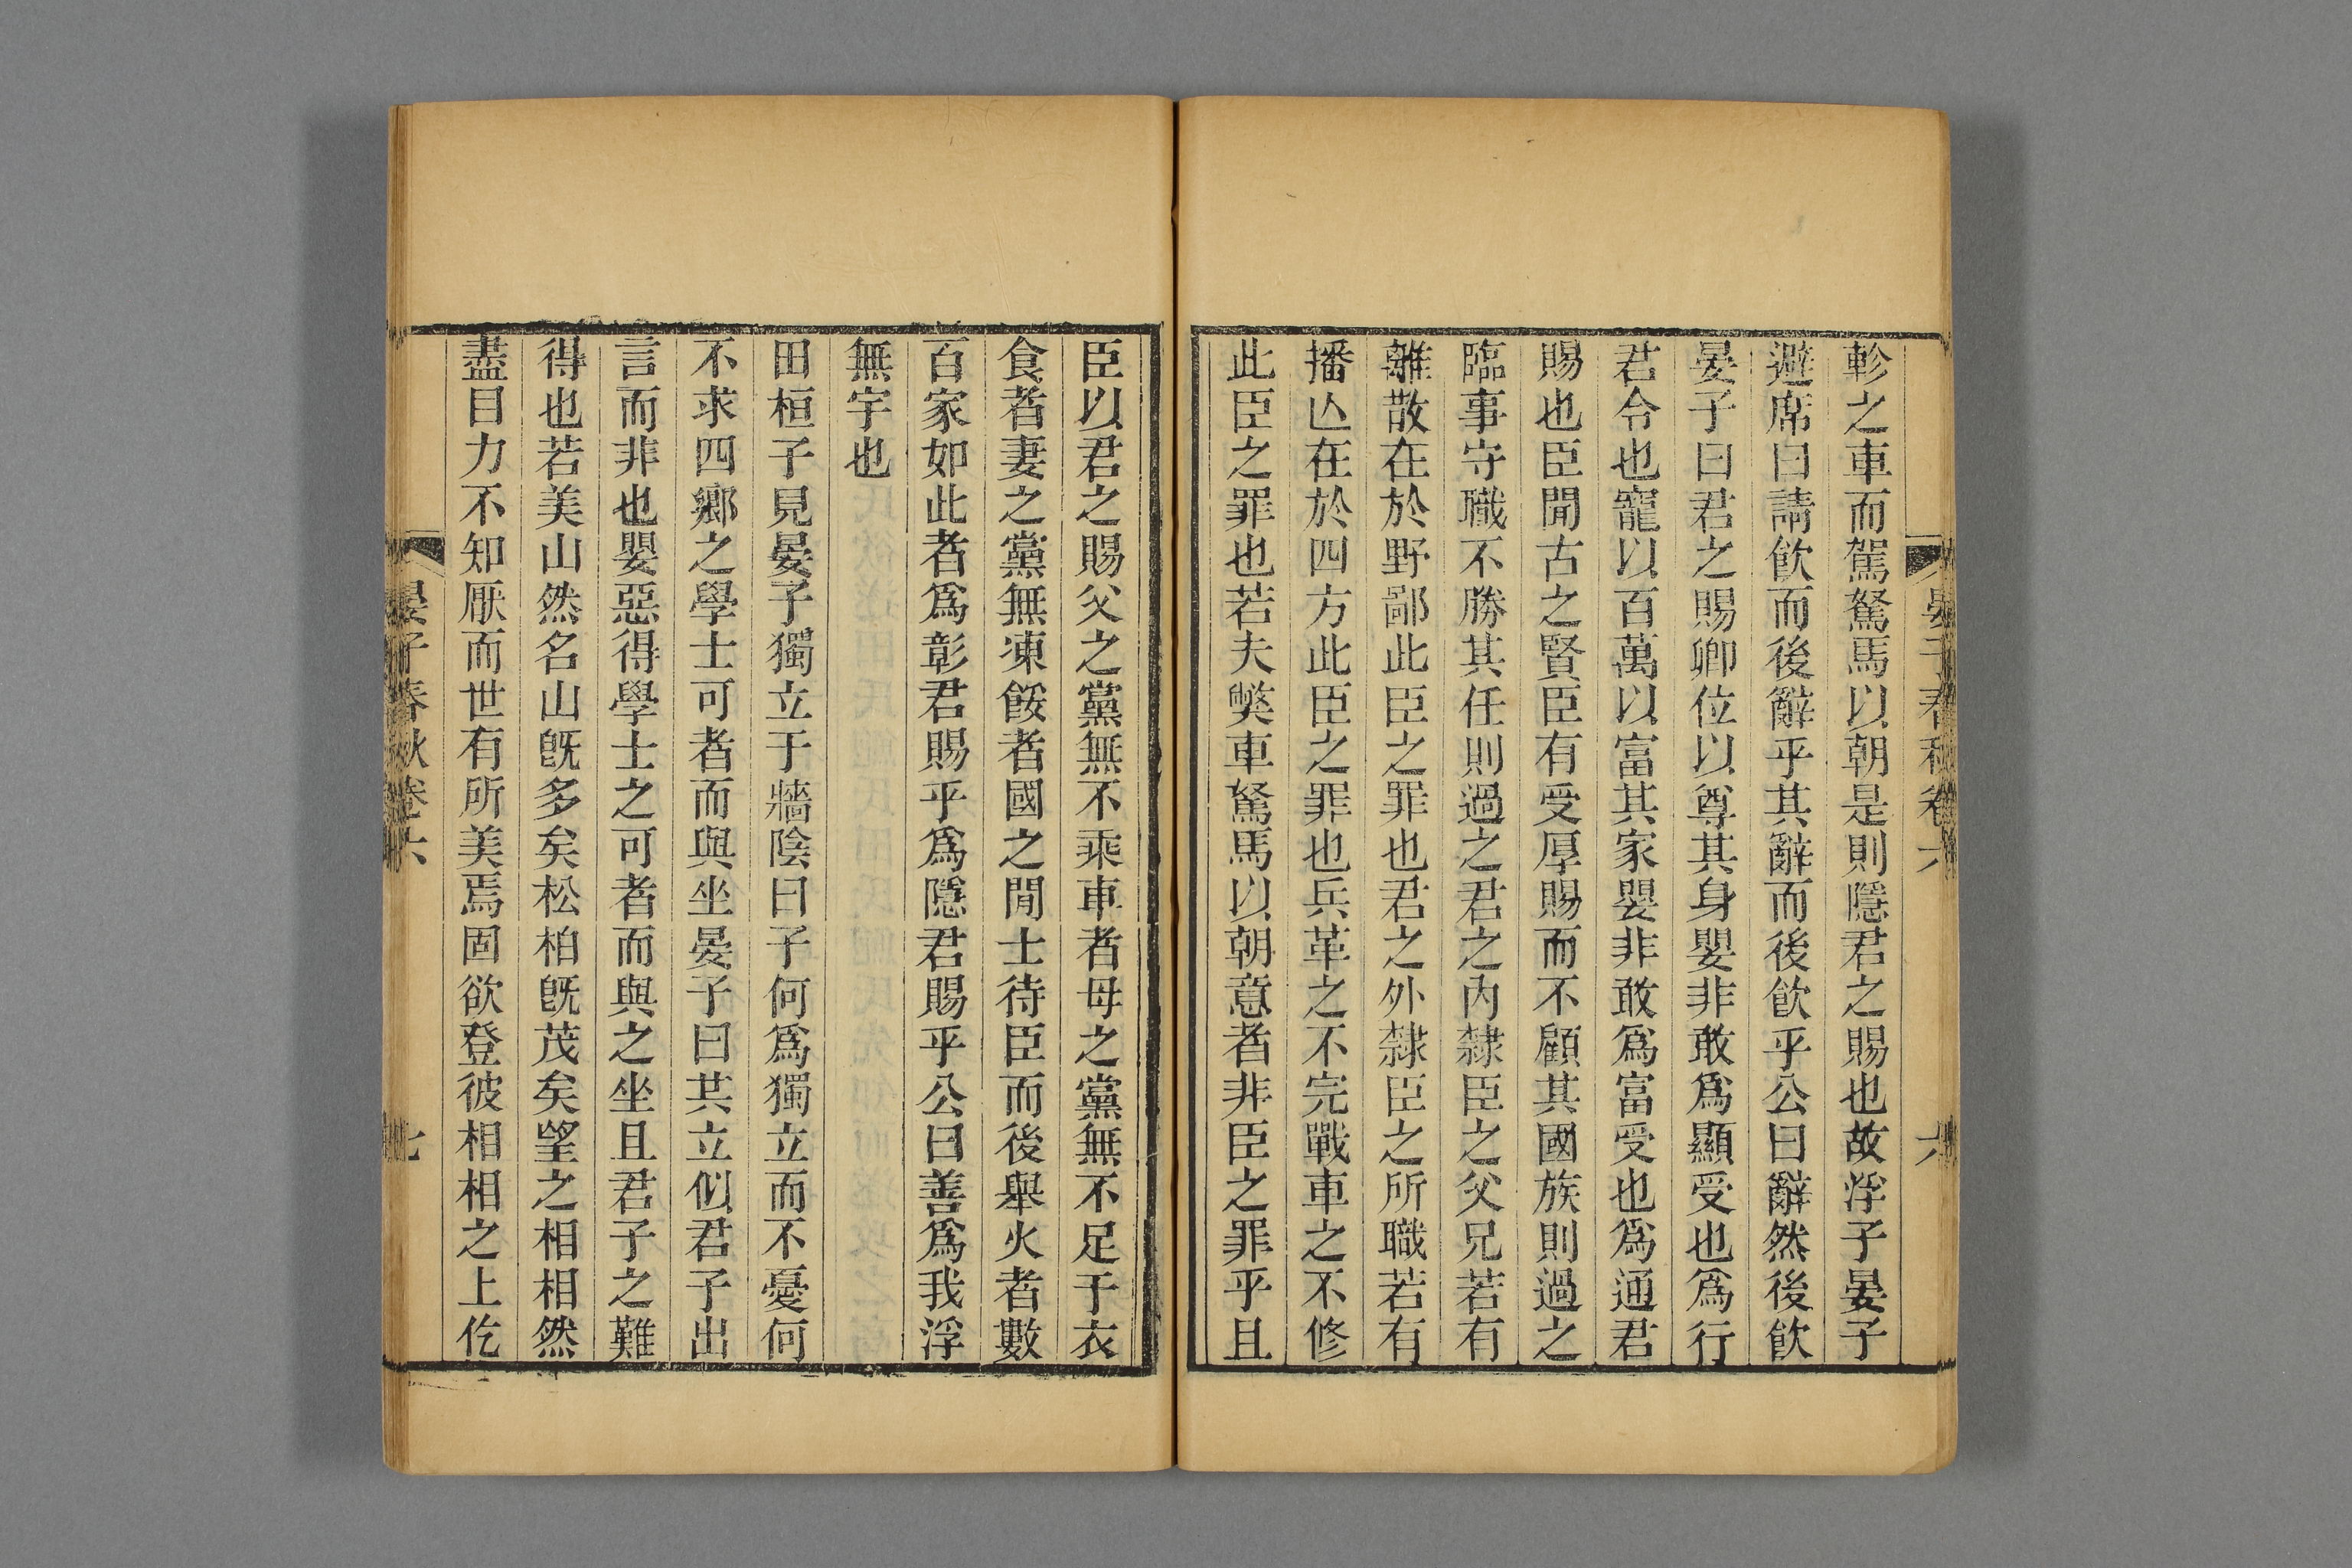 晏子春秋卷六
六
軫之車而駕駑馬以朝是則隱君之賜也故浮子晏子
避席曰請飮而後辭乎其辭而後飮乎公曰辭然後飮
晏子曰君之賜卿位以尊其身嬰非敢爲顯受也爲行
君令也寵以百萬以富其家嬰非敢爲富受也爲通君
賜也臣聞古之賢臣有受厚賜而不顧其國族則過之
臨事守職不勝其任則過之君之內隸臣之父兄若有
離散在於野鄙此臣之罪也君之外隸臣之所職若有
播亾在於四方此臣之罪也兵革之不完戰車之不修
此臣之罪也若夫獘車駑馬以朝意者非臣之罪乎且
臣以君之賜父之黨無不乘車者母之黨無不足于衣
食者妻之黨無凍餒者國之閒士待臣而後舉火者數
百家如此者爲彰君賜乎爲隱君賜乎公曰善爲我浮
無宇也
田桓子見晏子獨立于牆陰曰子何爲獨立而不憂何
不求四鄉之學士可者而與坐晏子曰共立似君子出
言而非也嬰惡得學士之可者而與之坐且君子之難
得也若美山然名山旣多矣松柏旣茂矣望之相相然
盡目力不知厭而世有所美焉固欲登彼相相之上仡
晏子春秋卷六
七